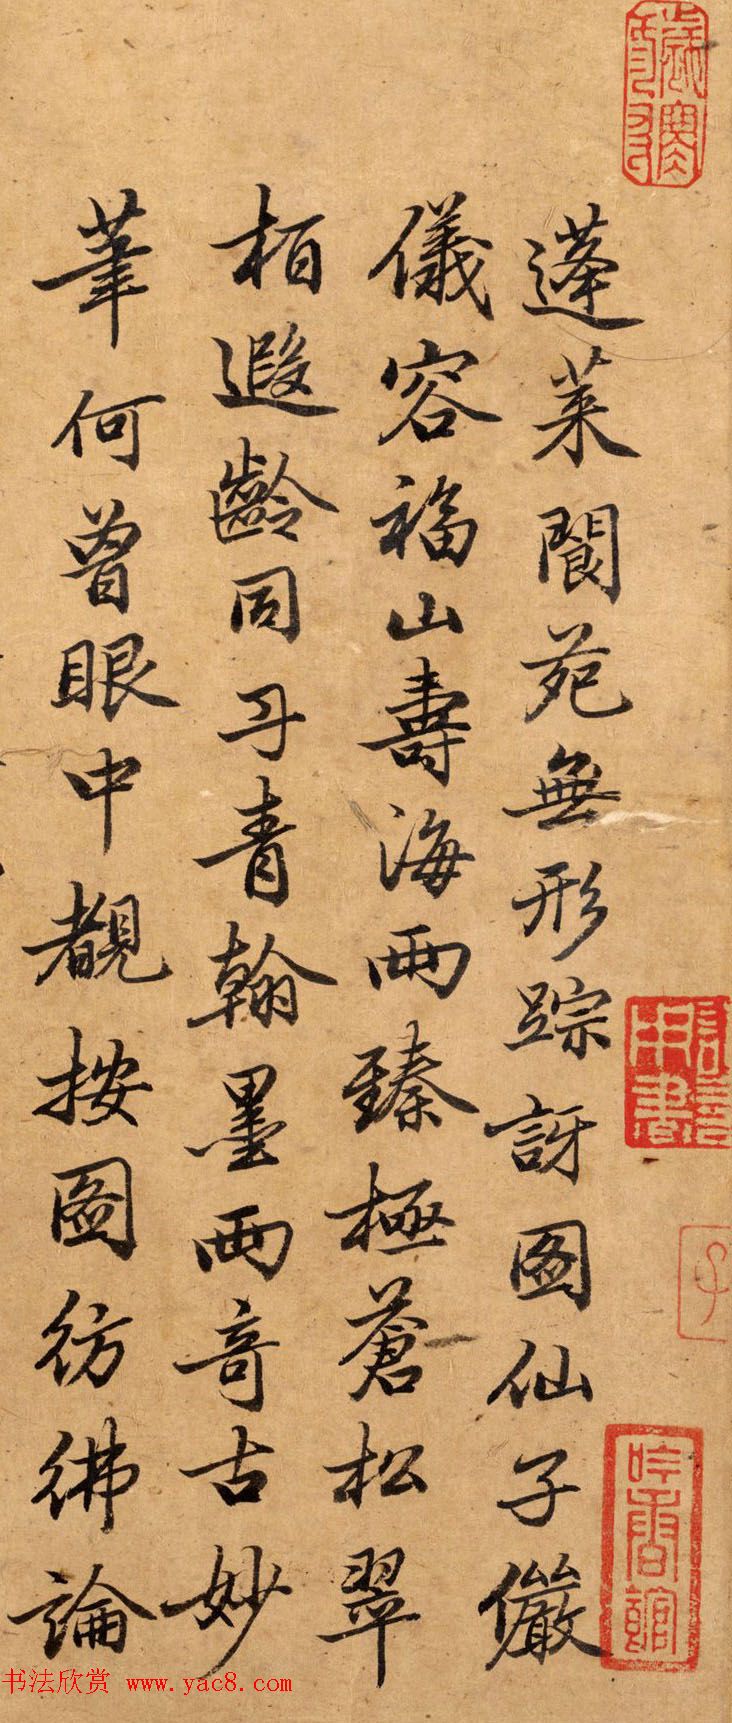 蓬莱閬苑無形踪訝図仙子儼
儀容福山壽海兩臻極蒼松翠
栢遐齡同丹青翰墨兩竒古妙
筆何曾眼中覩按圖彷彿論
吟香館
书法欣赏 www.yac8.com